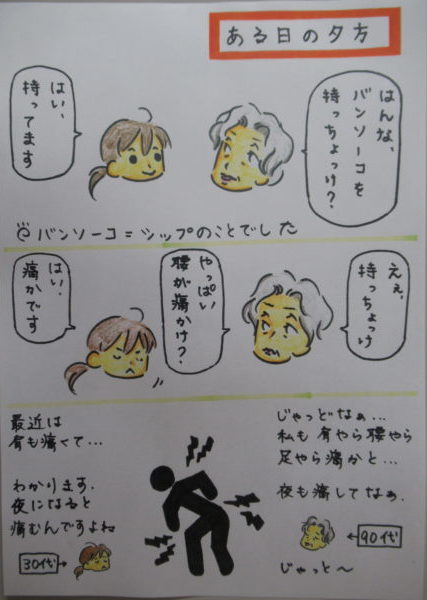 ある日の夕方
はんな、
バンソーコを
持っちょっけ？
はい、
持ってます
バンソーコ＝シップのことでした
えぇ、
持っちょっけ
やっぱい
腰が痛かけ？
はい、
痛かです
じゃっどなぁ…
私も肩やら腰やら
足やら痛かと…
夜も痛してなぁ、
←90代
じゃっと〜
最近は
肩も痛くて…
わかります、
夜になると
痛むんですよね
30代→